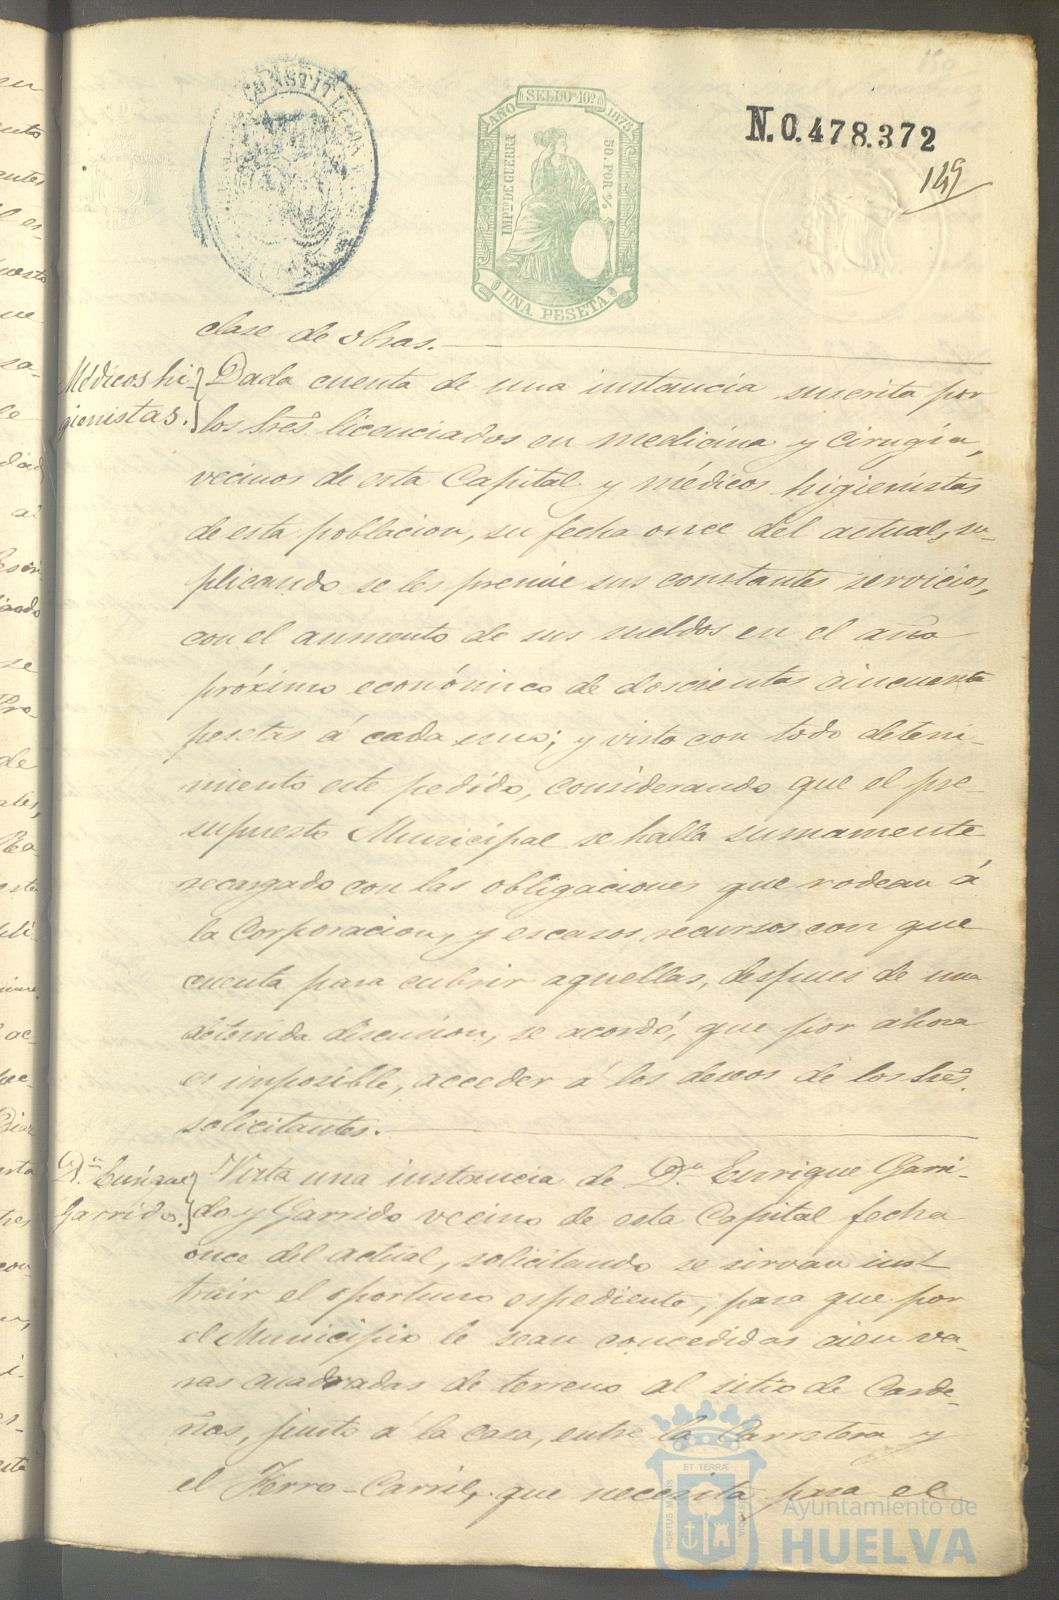 AÑO SELLO 10º 1878
IMPTO DE GUERRA
50. POR %
UNA PESETA
N. 0.478.372
149
clase de obras.
Médicos hi-
gienistas.
Dada cuenta de una instancia suscrita por
los tres licenciados en medicina y cirugía,
vecinos de esta Capital y médicos higienistas
de esta poblacion, su fecha once del actual, su-
plicando se les premie sus constantes servicios,
con el aumento de sus sueldos en el año
próximo económico de doscientas cincuenta
pesetas á cada uno; y visto con todo deteni-
miento este pedido, considerando que el pre-
supuesto Municipal se halla sumamente
recargado con las obligaciones que rodean á
la Corporacion, y escasos recursos con que
cuenta para cubrir aquellas, despues de una
detenida discusion, se acordó, que por ahora
es imposible, acceder á los deseos de los tres
solicitantes.
Dn. Enrique
Garrido.
Vista una instancia de Dn. Enrique Garri-
do y Garrido vecino de esta Capital fecha
once del actual, solicitando se sirvan inst
truir el oportuno espediente, para que por
el Municipio le sean concedidas cien va-
ras cuadradas de terreno al sitio de Carde-
ñas, junto á la casa, entre la Carretera y
el Ferro-Carril, que necesita para el
PORTUS MARIS
ET TERRÆ
CUSTODIA
Ayuntamiento de
HUELVA